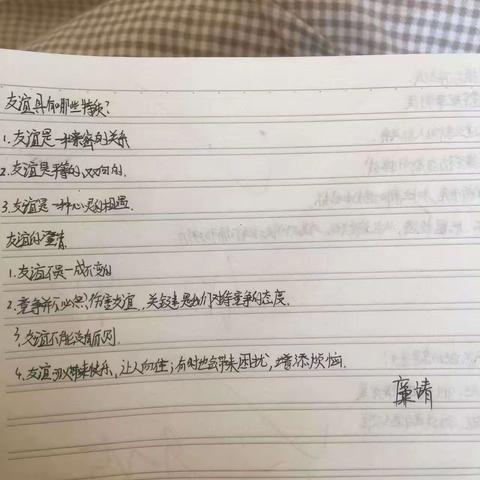 友谊具有哪些特质?
1.友谊是一种亲密的关系
2.友谊是平等的,双向的.
3.友谊是一种心灵的相遇.
友谊的澄清
1.友谊不是一成不变的
2.竞争并不必然伤害友谊,关键是我们对待竞争的态度.
3.友谊不能没有原则.
4.友谊可以带来快乐,让人向往;有时也会带来困扰,增添烦恼.
廉靖